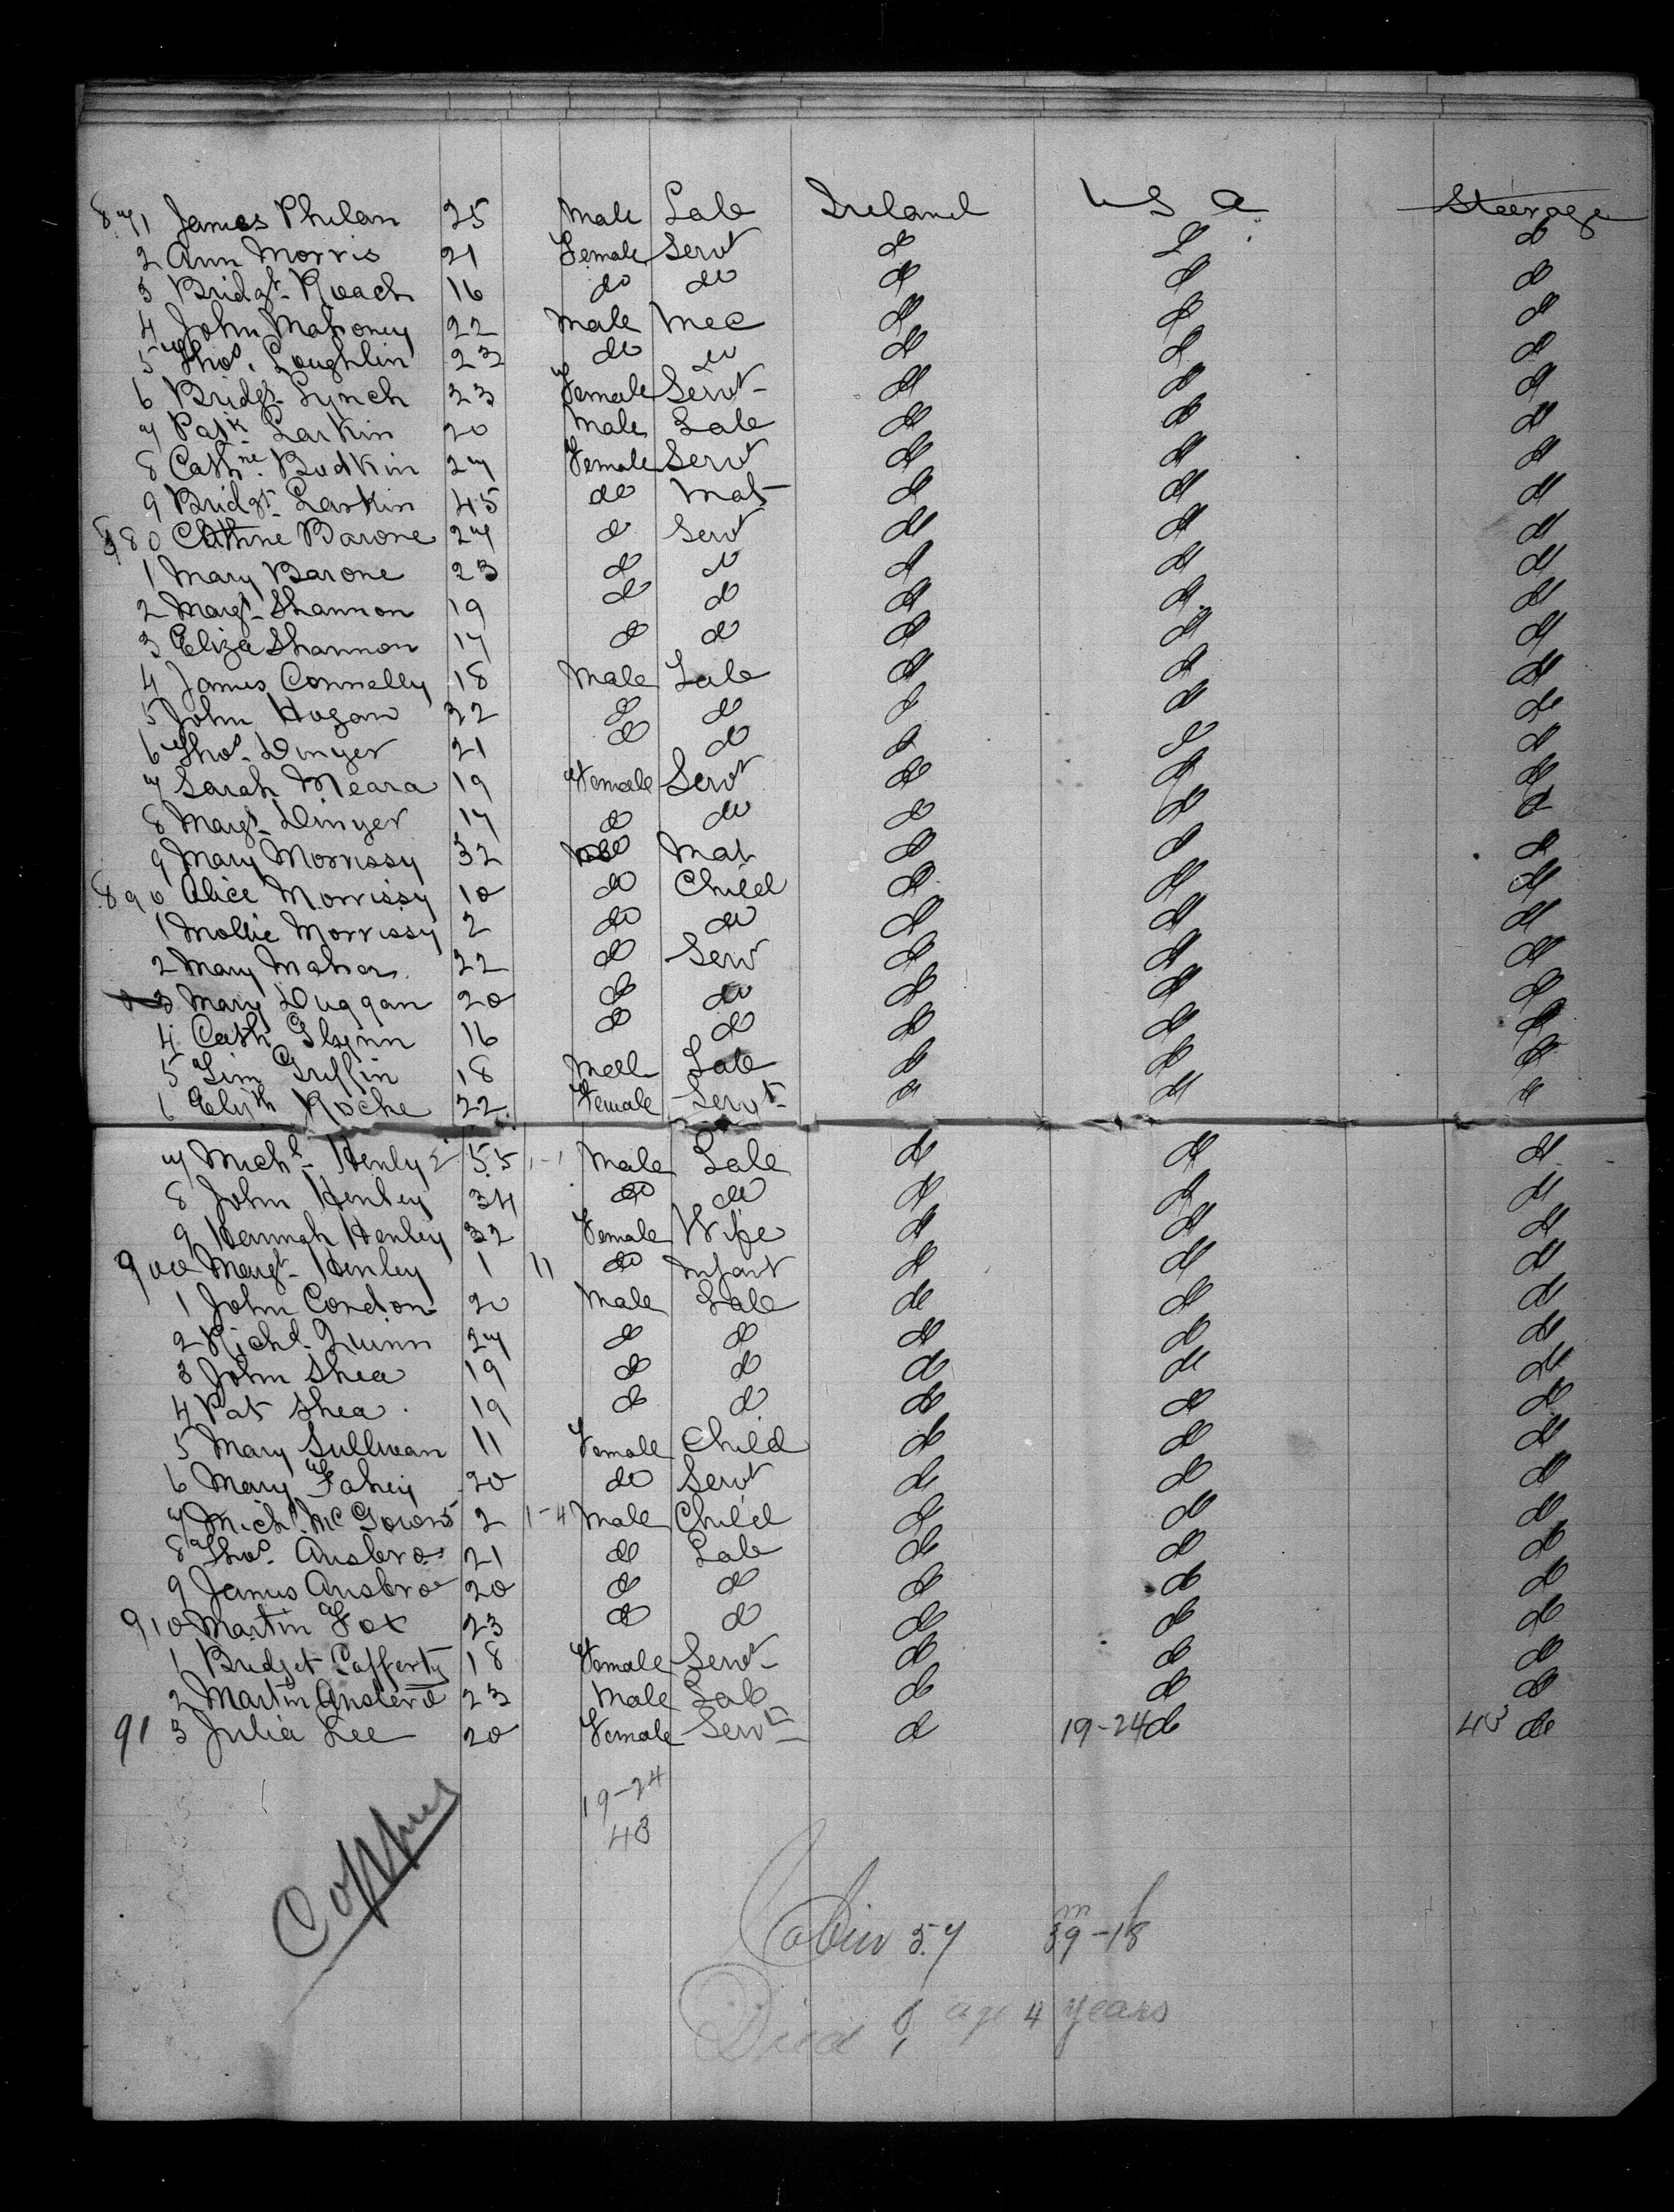 871 James Phelan 25 Male Lab Ireland U S A Steerage
2 Ann Morris 21 Female Servt do do do
3 Bridgt Roach 16 do do do do do
4 John Mahoney 22 Male Mec do do do
5 Thos. Loughlin 23 do do do do do
6 Bridgt Lynch 23 Female Servt do do do
7 Patk Larkin 20 Male Lab do do do
8 Cathne Bodkin 27 Female Servt do do do
9 Bridgt Larkin 45 do Mat do do do
880 Cathne Barone 27 do Servt do do do
1 Mary Barone 23 do do do do do
2 Margt Shannon 19 do do do do do
3 Eliza Shannon 17 do do do do do
4 James Connelly 18 Male Lab do do do
5 John Hogan 32 do do do do do
6 Thos Dwyer 21 do do do do do
7 Sarah Meara 19 Female Servt do do do
8 Margt Dwyer 17 do do do do do
9 Mary Morrissy 32 do Mat do do do
890 Alice Morrissy 10 do Child do do do
1 Mollie Morrissy 2 do do do do do
2 Mary Maher 22 do Serv do do do
3 Mary Duggan 20 do do do do do
4 Cath Glynn 16 do do do do do
5 Tim Griffin 18 Male Lab do do do
6 Elizth Roche 22 Female Servt do do do
7 Michl Henly 55 1-1 Male Lab do do do
8 John Henley 34 do do do do do
9 Hannah Henley 32 Female Wife do do do
900 Margt Henley 1 11 do Infant do do do
1 John Condon 20 Male Lab do do do
2 Richd Quinn 27 do do do do do
3 John Shea 19 do do do do do
4 Pat Shea 19 do do do do do
5 Mary Sullivan 11 Female Child do do do
6 Mary Fahey 20 do Servt do do do
7 Michl McGowan 2 1-4 Male Child do do do
8 Thos Ansbro 21 do Lab do do do
9 James Ansbro 20 do do do do do
910 Martin Fox 23 do do do do do
1 Bridget Cafferty 18 Female Servt do do do
2 Martin Ansbro 23 Male Lab do do do
913 Julia Lee 20 Female Servt do 19-24 do 43 do
19-24
43
Cabin 57 m f 39-18
Died 1 age 4 years